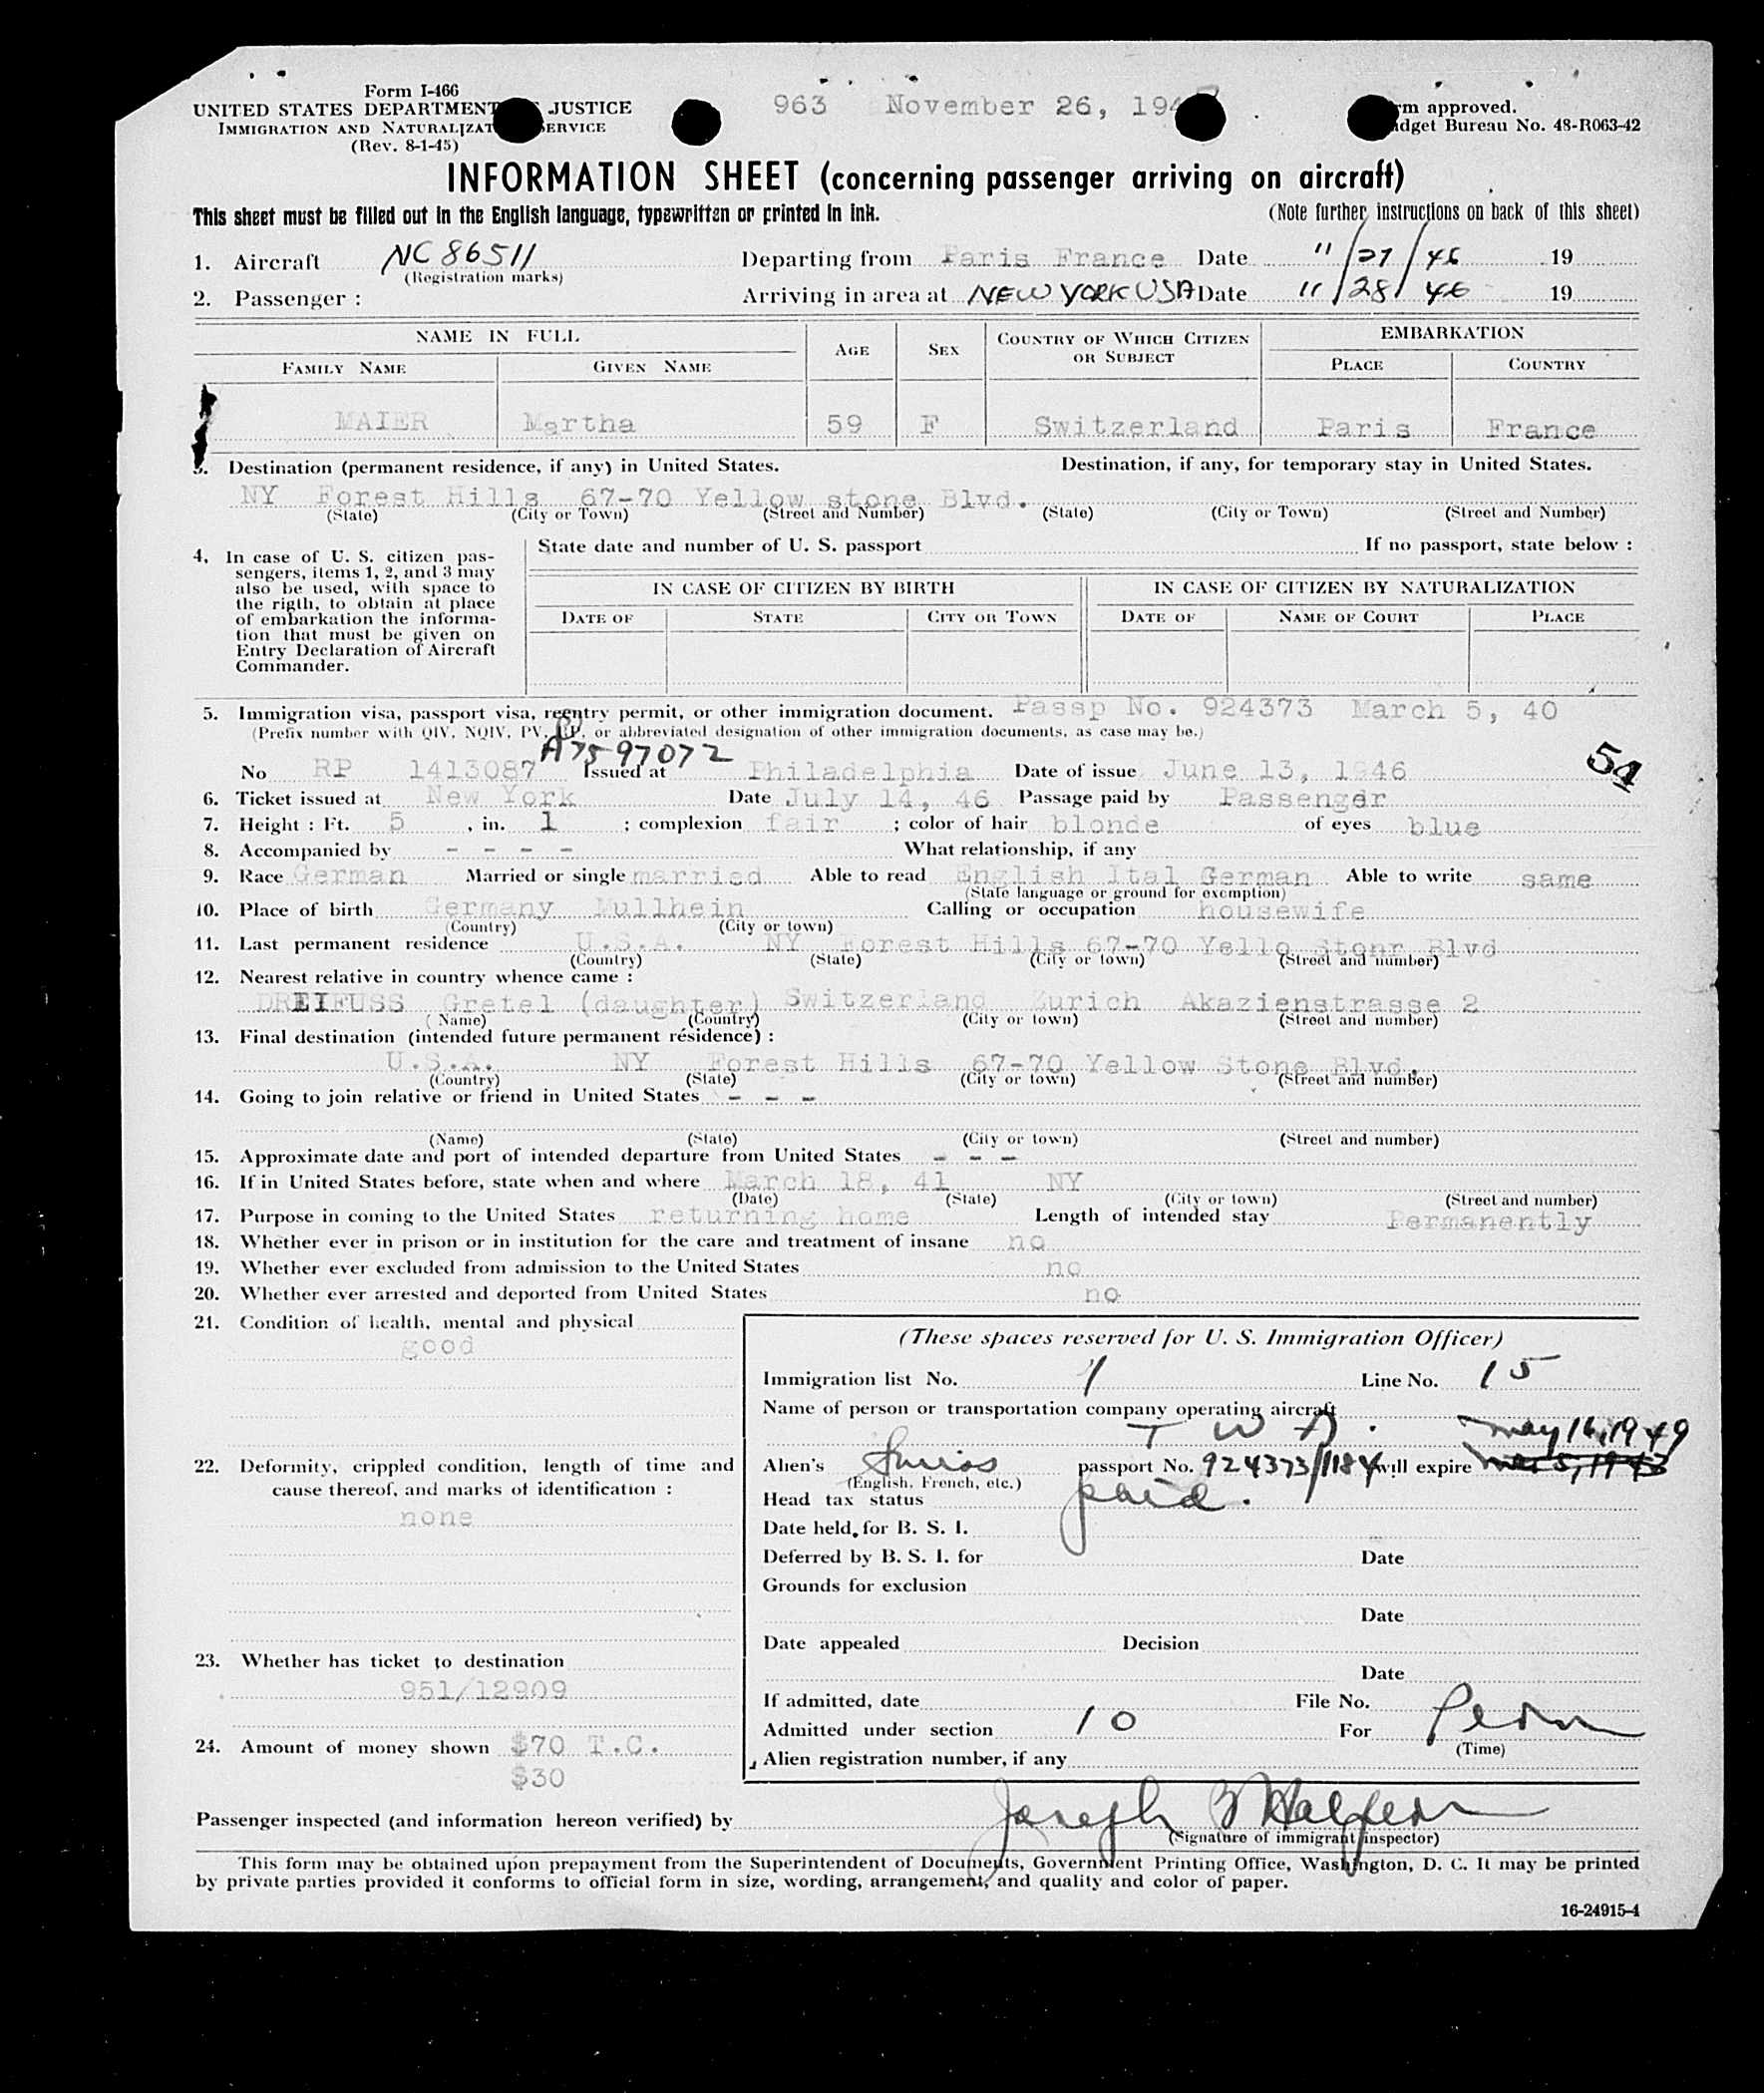 Form I-466
UNITED STATES DEPARTMENT JUSTICE
IMMIGRATION AND NATURALIZAT SERVICE
(Rev. 8-1-45)
963 November 26, 194
rm approved.
dget Bureau No. 48-R063-42
INFORMATION SHEET (concerning passenger arriving on aircraft)
This sheet must be filled out in the English language, typewritten or printed in ink. (Note further instructions on back of this sheet)
1. Aircraft NC 86511 Departing from Paris France Date 11/27/46 19
(Registration marks)
2. Passenger : Arriving in area at NEW YORK USA Date 11/28/46 19
NAME IN FULL AGE SEX COUNTRY OF WHICH CITIZEN OR SUBJECT EMBARKATION
FAMILY NAME GIVEN NAME PLACE COUNTRY
MAIER Martha 59 F Switzerland Paris France
3. Destination (permanent residence, if any) in United States. Destination, if any, for temporary stay in United States.
NY Forest Hills 67-70 Yellow stone Blvd.
(State) (City or Town) (Street and Number) (State) (City or Town) (Street and Number)
4. In case of U. S. citizen pas-
sengers, items 1, 2, and 3 may
also be used, with space to
the rigth, to obtain at place
of embarkation the informa-
tion that must be given on
Entry Declaration of Aircraft
Commander.
State date and number of U. S. passport If no passport, state below :
IN CASE OF CITIZEN BY BIRTH IN CASE OF CITIZEN BY NATURALIZATION
DATE OF STATE CITY OR TOWN DATE OF NAME OF COURT PLACE
5. Immigration visa, passport visa, reentry permit, or other immigration document. Passp No. 924373 March 5, 40
(Prefix number with QIV, NQIV, PV, RP, or abbreviated designation of other immigration documents, as case may be.)
A7597072
54
No RP 1413087 Issued at Philadelphia Date of issue June 13, 1946
6. Ticket issued at New York Date July 14, 46 Passage paid by Passenger
7. Height : Ft. 5 , in. 1 ; complexion fair ; color of hair blonde of eyes blue
8. Accompanied by - - - - What relationship, if any
9. Race German Married or single married Able to read English Ital German Able to write same
(State language or ground for exemption)
10. Place of birth Germany Mullhein Calling or occupation housewife
(Country) (City or town)
11. Last permanent residence U.S.A. NY Forest Hills 67-70 Yello Stonr Blvd
(Country) (State) (City or town) (Street and number)
12. Nearest relative in country whence came :
DREIFUSS Gretel (daughter) Switzerland Zurich Akazienstrasse 2
(Name) (Country) (City or town) (Street and number)
13. Final destination (intended future permanent résidence) :
U.S.A. NY Forest Hills 67-70 Yellow Stone Blvd.
(Country) (State) (City or town) (Street and number)
14. Going to join relative or friend in United States - - -
(Name) (State) (City or town) (Street and number)
15. Approximate date and port of intended departure from United States - - -
16. If in United States before, state when and where March 18, 41 NY
(Date) (State) (City or town) (Street and number)
17. Purpose in coming to the United States returning home Length of intended stay Permanently
18. Whether ever in prison or in institution for the care and treatment of insane no
19. Whether ever excluded from admission to the United States no
20. Whether ever arrested and deported from United States no
21. Condition of health, mental and physical
good
22. Deformity, crippled condition, length of time and
cause thereof, and marks of identification :
none
23. Whether has ticket to destination
951/12909
24. Amount of money shown $70 T.C.
$30
(These spaces reserved for U. S. Immigration Officer)
Immigration list No. 1 Line No. 15
Name of person or transportation company operating aircraft
T W A. May 16, 1949
Alien's Swiss passport No. 924373/1184 will expire Mar 5, 1943
(English, French, etc.)
Head tax status paid.
Date held for B. S. I.
Deferred by B. S. I. for Date
Grounds for exclusion
Date
Date appealed Decision
Date
If admitted, date File No.
Admitted under section 10 For Perm
(Time)
Alien registration number, if any
Passenger inspected (and information hereon verified) by Joseph B Halpern
(Signature of immigrant inspector)
This form may be obtained upon prepayment from the Superintendent of Documents, Government Printing Office, Washington, D. C. It may be printed
by private parties provided it conforms to official form in size, wording, arrangement, and quality and color of paper.
16-24915-4